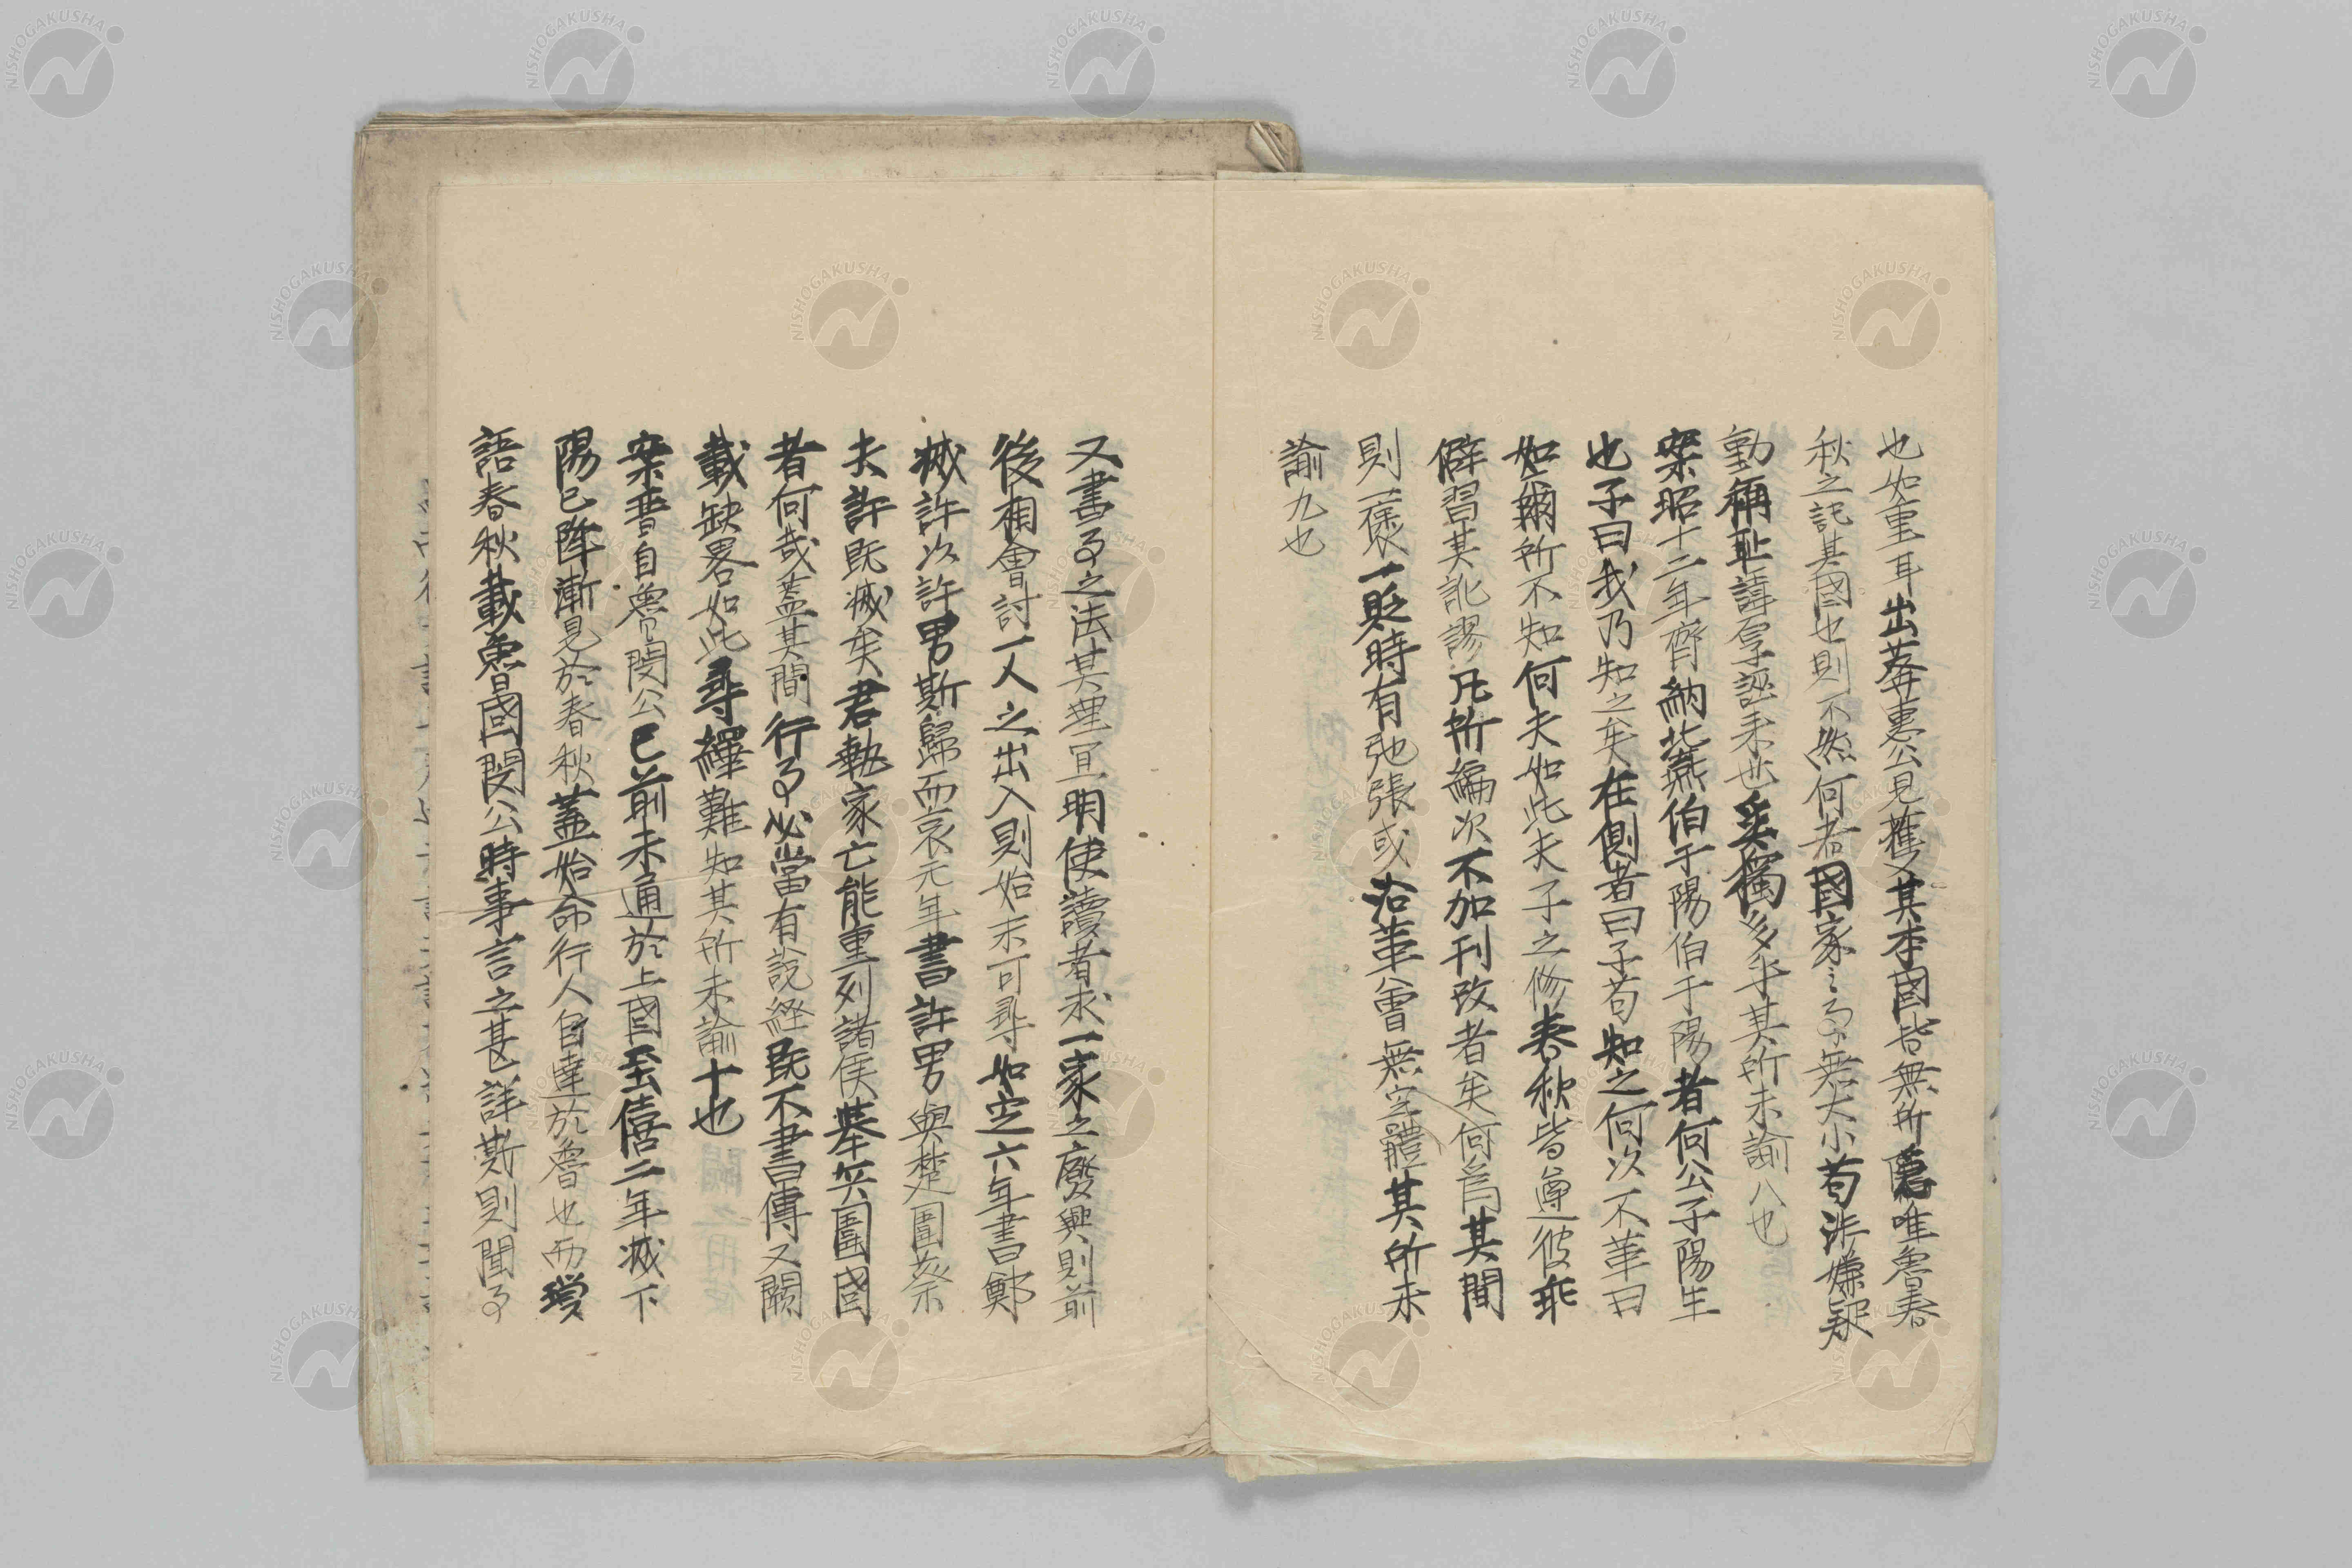 也如重耳出莽惠公見獲又其本國皆無所隱唯魯春
秋之記其國也則不然何者國家之事無大小苟涉嫌疑
動稱耻諱厚誣来世奚獨多乎其所未諭八也
案昭十二年齊納北燕伯于陽伯于陽者何公子陽生
也子曰我乃知之矣在側者曰子苟知之何以不革曰
如爾所不知何夫如此夫子之修春秋皆遵彼乖
僻習其訛謬凡所編次不加刊改者矣何爲其間
則一褒一貶時有弛張或沿革曾無定體其所未
諭九也
又書事之法其理宜明使讀者求一家之廢興則前
後相會討一人之出入則始末可尋如定六年書鄭
滅許以許男斯歸而哀元年書許男與楚圍蔡
夫許既滅矣君執家亡能重列諸侯舉兵圍國
者何哉蓋其間行事必當有說経既不書傳又闕
載缺畧如此尋繹難知其所未諭十也
案晋自魯閔公已前未通於上國至僖二年滅下
陽已降漸見於春秋蓋始命行人自達於魯也而瑣
語春秋載魯國閔公時事言之甚詳斯則聞事
NISHOGAKUSHA